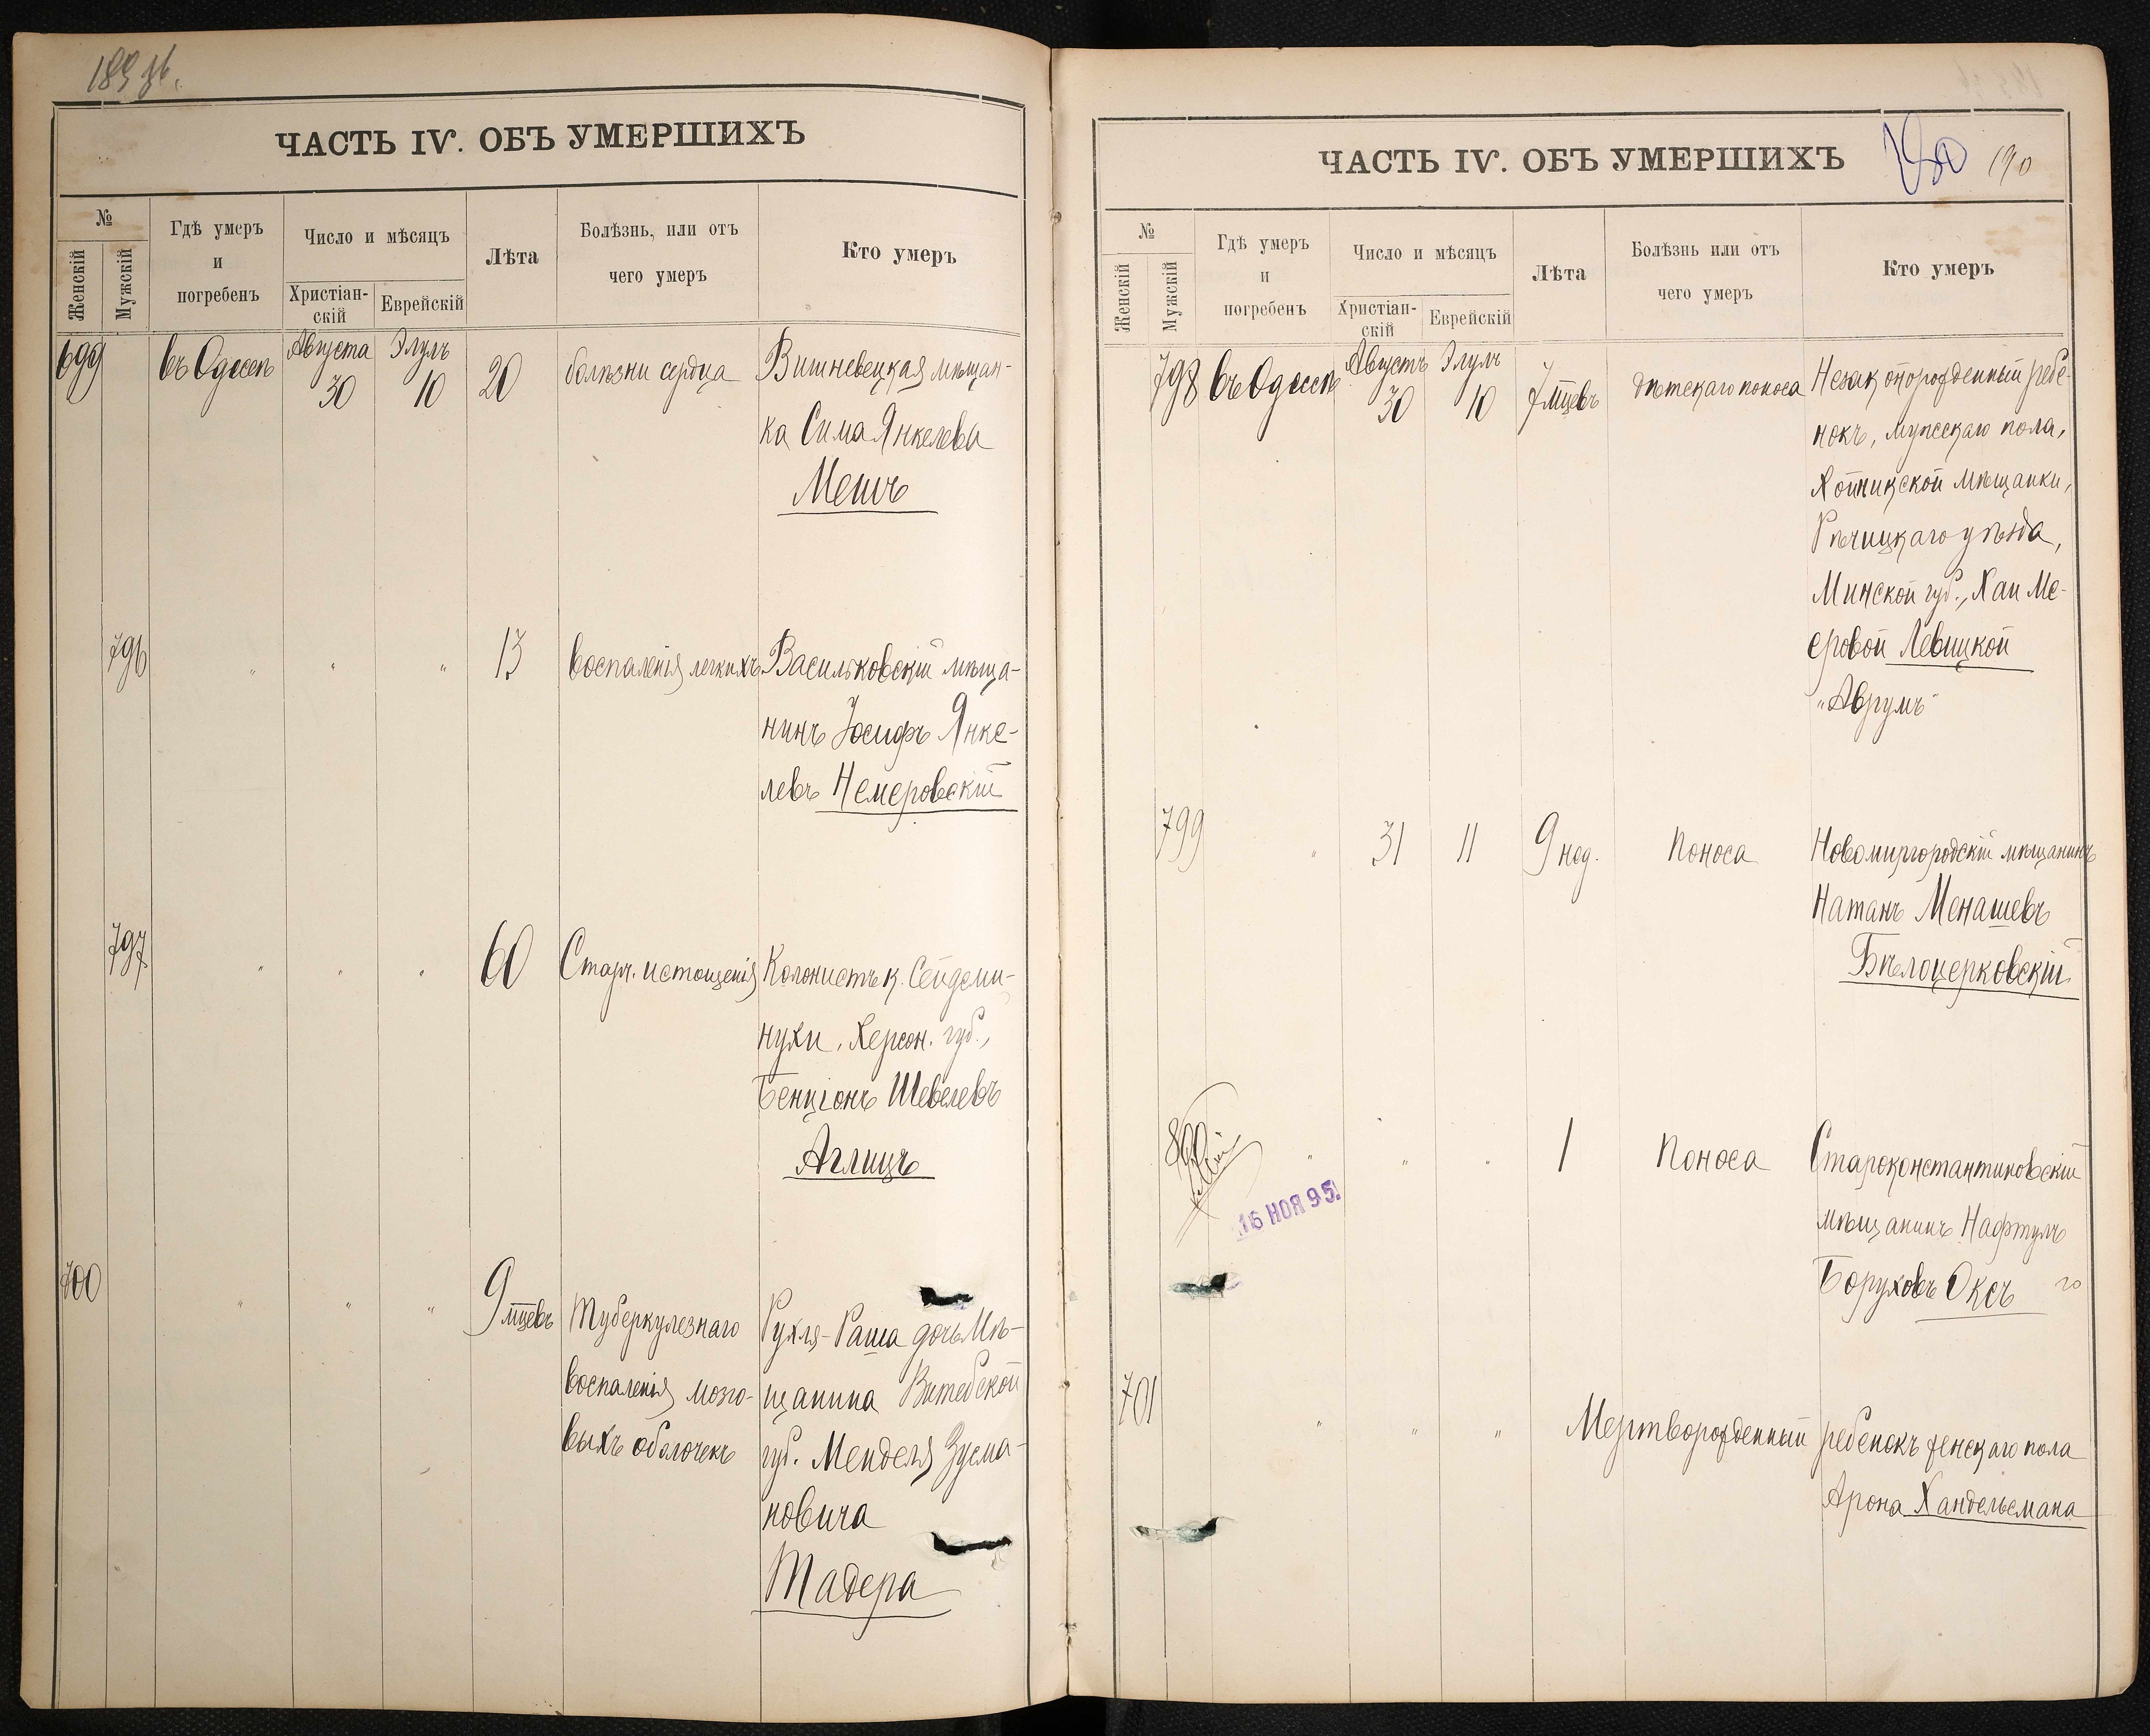 ЧАСТЬ IV. ОБЪ УМЕРШИХЪ
№
Женскій
Мужскій
Гдѣ умеръ
и
погребенъ
Число и мѣсяцъ
Христіан-
скій
Еврейскій
Лѣта
Болѣзнь, или отъ
чего умеръ
Кто умеръ
699 въ Одессѣ Августа 30 Элулъ 10 20 болѣзни сердца Вишневецкая мѣщан-
ка Сима Янкелева
Менчъ
796 " " " 13 воспаленія легкихъ Васильковскій мѣща-
нинъ Іосифъ Янке-
левъ Немеровскій
797 " " " 60 Старч. истощенія Колонистъ к. Сейдеми-
нухи, Херсон. губ.,
Бенціонъ Шевелевъ
Аглицъ
700 " " " 9 мцевъ Туберкулезнаго Рухля-Раша дочь Мѣ-
воспаленія мозго- щанина Витебской
выхъ оболочекъ губ. Менделя Зусма-
новича
Тадера
ЧАСТЬ IV. ОБЪ УМЕРШИХЪ 190
№
Женскій
Мужскій
Гдѣ умеръ
и
погребенъ
Число и мѣсяцъ
Христіан-
скій
Еврейскій
Лѣта
Болѣзнь или отъ
чего умеръ
Кто умеръ
798 въ Одессѣ Августъ 30 Элулъ 10 7 мцевъ дѣтскаго поноса Незаконорожденный ребе-
нокъ, мужскаго пола,
Хойникской мѣщанки,
Рѣчицкаго уѣзда,
Минской губ., Хаи Ме-
еровой Левицкой
"Аврумъ"
799 " 31 11 9 нед. Поноса Новомиргородскій мѣщанинъ
Натанъ Менашевъ
Бѣлоцерковскій
800 " " " 1 Поноса Староконстантиновскій
16 НОЯ 95.
мѣщанинъ Нафтулъ
Боруховъ Оксъ
701 " " " Мертворожденный ребенокъ женскаго пола
Арона Хандельсмана